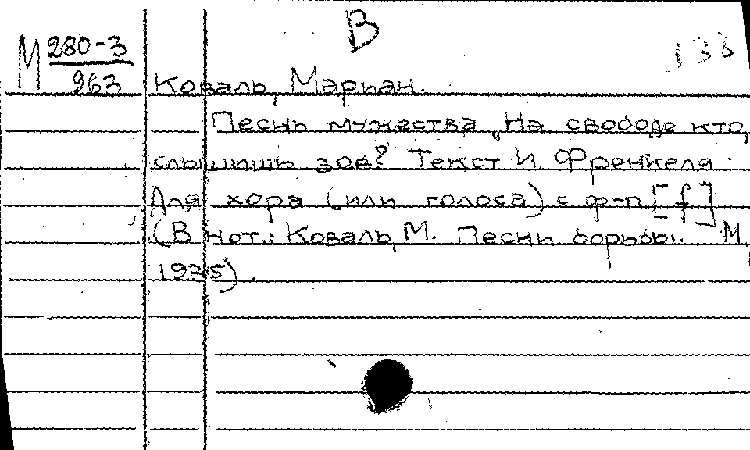 В
М 280-3 133
963 Коваль, Мариан.
Песнь мужества „На свободе кто,
слышишь зов? Текст И Френкеля
Для хора (или голоса) с ф-п. [f]
(В нот.: Коваль, М. Песни борьбы. М,
1935).